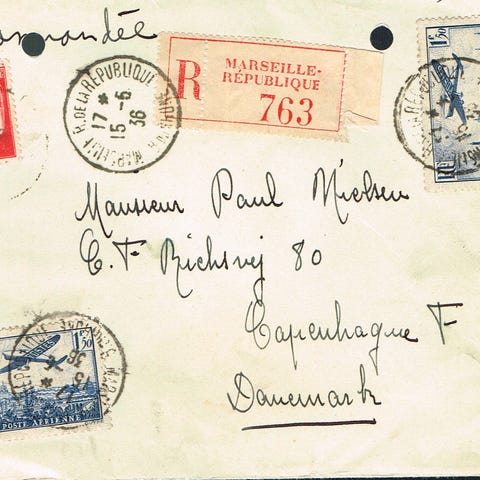 mandée
R
MARSEILLE-
RÉPUBLIQUE
763
R. DE LA RÉPUBLIQUE
17 *
15 -6
36
1F50
Monsieur Paul Nielsen
C. F Richsvej 80
Copenhague F
Danemark
1F50
POSTES
POSTE AÉRIENNE